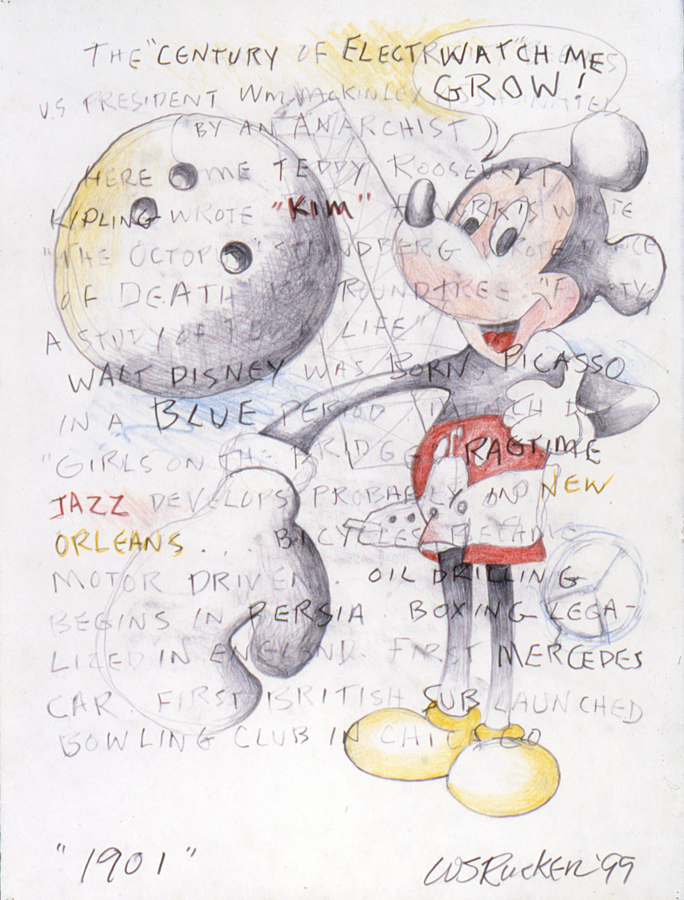 THE "CENTURY OF ELECTR
WATCH ME
GROW!
U.S PRESIDENT WM. MACKINLEY
BY AN ANARCHIST)
HERE ME TEDDY ROOSEVELT
KIPLING WROTE "KIM" WROTE
"THE OCTOPUS" STRINDBERG WROTE DANCE
OF DEATH ROUNTREE "POVERTY,
A STUDY OF TOWN LIFE"
WALT DISNEY WAS BORN PICASSO
IN A BLUE PERIOD MUNCH
"GIRLS ON THE BRIDGE" RAGTIME
JAZZ DEVELOPS PROBABLY NEW
ORLEANS . . . BICYCLES BECAME
MOTOR DRIVEN. OIL DRILLING
BEGINS IN PERSIA. BOXING LEGA-
LIZED IN ENGLAND. FIRST MERCEDES
CAR. FIRST BRITISH SUB LAUNCHED
BOWLING CLUB IN CHICAGO
"1901"
WSRUCKER '99